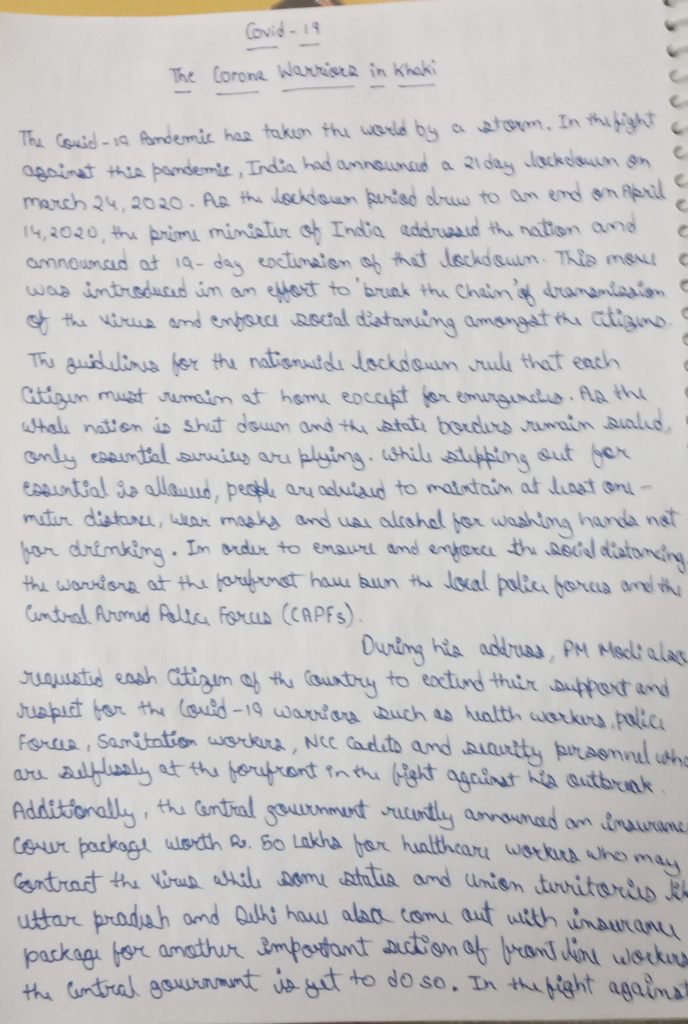 Covid-19
The Corona Warriors in Khaki
The Covid-19 Pandemic has taken the world by a storm. In the fight
against this pandemic, India had announced a 21 day lockdown on
march 24, 2020. As the lockdown period drew to an end on April
14, 2020, the prime minister of India addressed the nation and
announced at 19-day extension of that lockdown. This move
was introduced in an effort to 'break the Chain' of dransmission
of the virus and enforce social distancing amongst the Citizens.
The guidelines for the nationwide lockdown rule that each
Citizen must remain at home except for emergencies. As the
whole nation is shut down and the state borders remain sealed,
only essential services are plying. while stepping out for
essential is allowed, people are advised to maintain at least one-
meter distance, wear masks and use alcohol for washing hands not
for drinking. In order to ensure and enforce the social distancing
the warriors at the forefrnot have been the local police forces and the
Central Armed Police Forces (CAPFs).
During his address, PM Modi also
requested eash Citizen of the Country to extend their support and
respect for the Covid-19 warriors such as health workers, police
Forces, Sanitation workers, NCC Cadets and security personnel who
are selflessly at the forefront in the fight against his outbreak.
Additionally, the Central government recently announced an insurance
Cover package worth Rs. 50 Lakhs for healthcare workers who may
Contract the virus while some states and union territories
uttar pradesh and Delhi have also come out with insurance
package for another important section of front line workers
the Central government is yet to do so. In the fight against